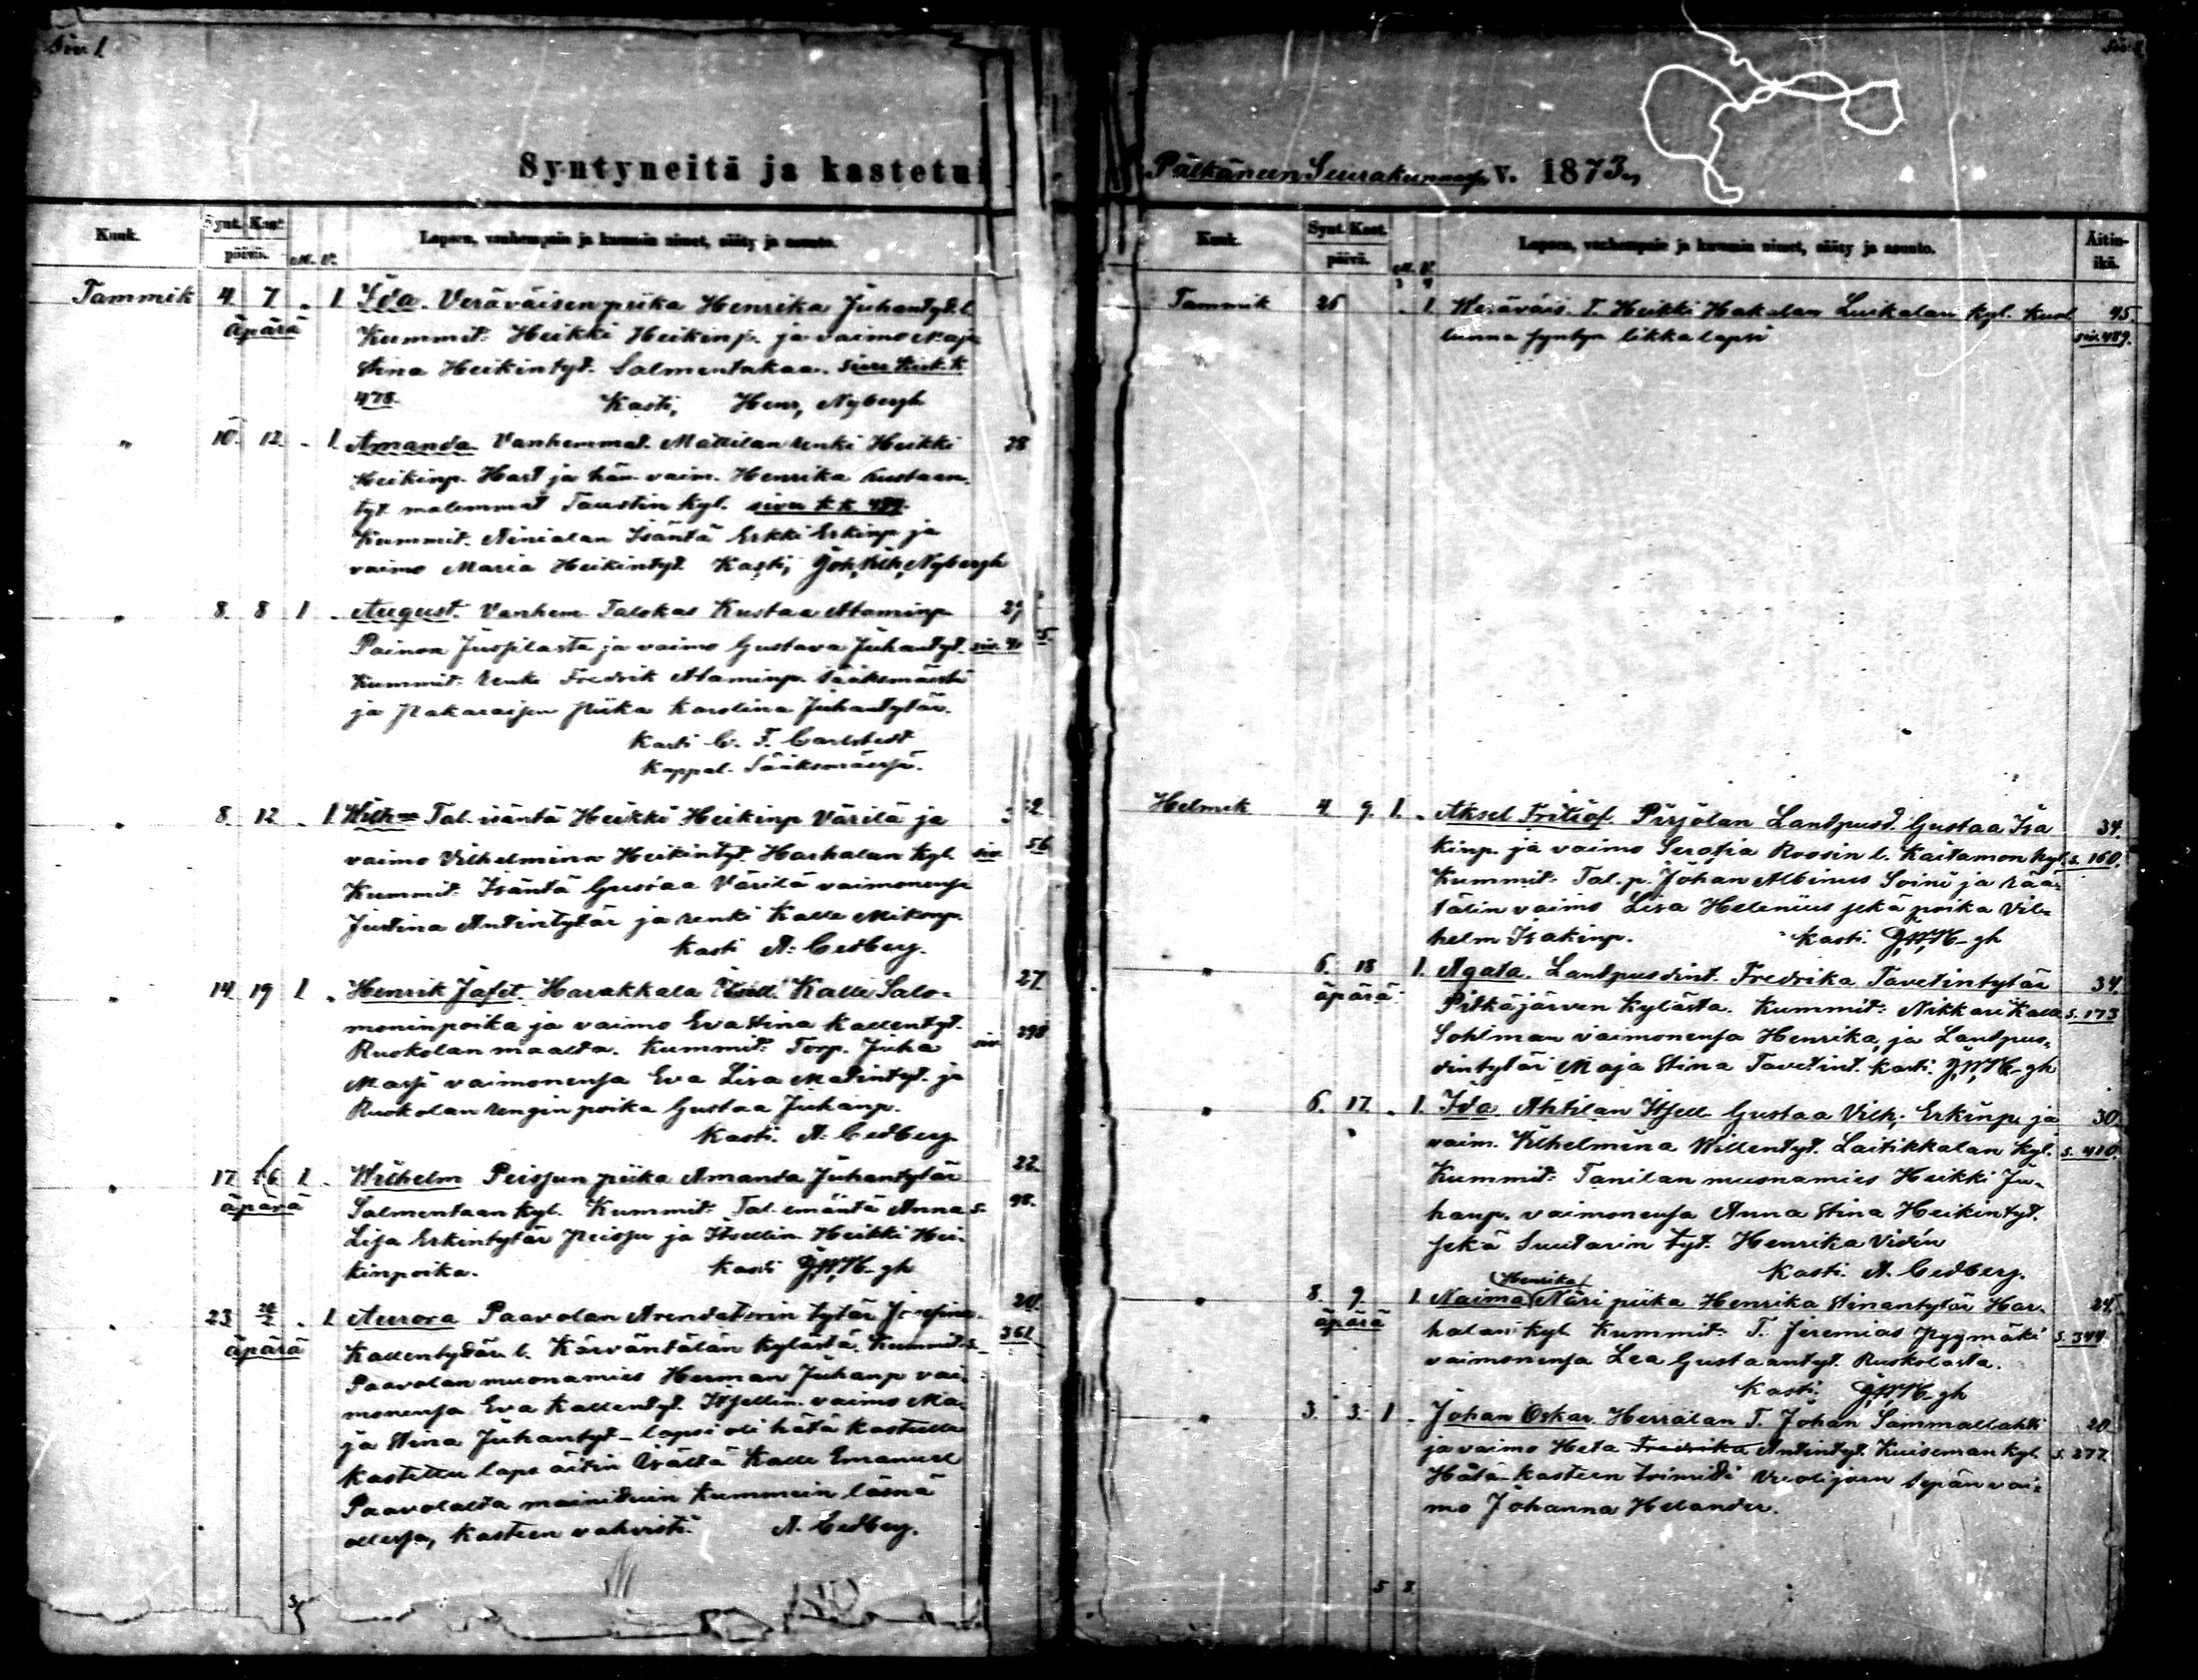 Siv. 1
Syntyneitä ja kastetui
Kuuk. Synt. Kast. päivä. M. V. Lapsen, vanhempain ja kummin nimet, sääty ja asunto.
Tammik 4. 7. 1 Ida. Veräväisen piika Henrika Juhantyt. l.
äpärä Kummit: Heikki Heikinp. ja vaimo Maja
Stina Heikintyt. Salmentakaa.
478. Kasti, Henr, Nybergh
" 10. 12. 1. Amanda Vanhemmat. Mattilan renki Heikki 28
Heikinp. Hart ja hän. vaim. Henrika Kustaan
tyt. molemmat Taustin kyl. sivu k.k. 499.
Kummit. Isäntä Erkki Erkinp. ja
vaimo Maria Heikintyt. Kasti, Joh, Vilh, Nybergh
" 8. 8 1 August. Vanhem. Talokas Kustaa Ataminp. 27
Painon Jussilasta ja vaimo Gustava Juhantyt. siv.
Kummit: renki Fredrik Ataminp. Sääksmäeltä
ja piika Karolina Juhantytär.
Kasti C. F. Carlstedt
Kappal. Sääksmäessä.
" 8. 12 1 Tal. isäntä Heikki Heikinp Värilä ja
vaimo Vilhelmina Heikintyt. Harhalan kyl. siv. 56
Kummit. Isäntä Gustaa Värilä vaimonensa
Justina Antintytär ja renki Kalle Mikonp.
Kasti A. Cedberg.
" 14. 19 1. Henrik Jafet. Harakkala Itsell. Kalle Salo- 27.
moninpoika ja vaimo Eva Stina Kallentyt.
Ruokolan maalta. Kummit: Torp. Juha siv. 298
vaimonensa Eva Lisa Matintyt. ja
Ruokolan rengin poika Gustaa Juhanp.
Kasti. A. Cedberg
" 17. 1. Wilhelm Peissun piika Amanda Juhantytär 22.
äpärä Salmentaan kyl. Kummit: Tal. emäntä Anna s. 98.
Lisa Erkintytär Peissu ja Itsellin. Heikki Hei-
kinpoika. Kasti J,W,N-gh
" 23. 1. Aurora Paavolan Arendatorin tytär Josefina 20.
äpärä Kallentytär l. Kärväntälän kylästä. Kummit. s. 361
Paavolan muonamies Herman Juhanp vai-
monensa Eva Kallentyt. Itsellin. vaimo Ma-
ja Stina Juhantyt_ lapsi oli hätä kastella
kastettu laps äitin isältä Kalle Emanuel
Paavolalda mainituin Kummein läsnä
ollessa, Kasteen vahvisti. A. Cedberg.
Pälkäneen Seurakunnassa v. 1873.
Kuuk. Synt. Kast. päivä. M. V. Lapsen, vanhempain ja kummin nimet, sääty ja asunto. Äitin-ikä.
Tammik 26 1. T. Heikki Hakalan Luikalan kyl. kuol 45.
lunna syntyn likkalapsi siv. 489.
Helmik 4. 9. 1. Aksel Fritiof. Pirjolan Lantpusd. Gustaa Isa 34.
kinp. ja vaimo Serafia Roosin l. Kaitamon kyl. s. 160.
Kummit: Tal. p. Johan Albinus Soini ja rää-
tälin vaimo Lisa Helenius sekä poika Vil-
helm Isakinp. Kasti. J,W,N-gh
" 6. 18 1. Agata. Lantpusdint. Fredrika Tavetintytär 34.
äpärä Pitkäjärven kylästä. Kummit: Nikkari Kalle s. 173
Sohlman vaimonensa Henrika, ja Lantpus-
dintytär Maja Stina Tavetint. Kasti. J,W,N-gh
" 6. 17. 1. Ida. Ahtilan Itsell Gustaa Vilh, Erkinp. ja 30.
vaim. Vilhelmina Willentyt. Laitikkalan kyl. s. 410.
Kummit: Tanilan muonamies Heikki Ju-
hanp. vaimonensa Anna Stina Heikintyt.
sekä Suutarin tyt. Henrika Vidén
Kasti. A. Cedberg.
" 8. 9 1 Naima (Henrika) Näri piika Henrika Stinantytär Har- 24.
äpärä halan kyl. Kummit: T. Jeremias Pyymäki s. 344.
vaimonensa Lea Gustaantyt. Ruokolasta.
Kasti. J,W,N-gh
" 3. 3. 1. Johan Oskar Herralan T. Johan Sammallahti 20
ja vaimo Heta Fredrika Antintyt. Kuiseman kyl. s. 277.
Hätä-kasteen toimitti sepän vai-
mo Johanna Helander.
5 8.